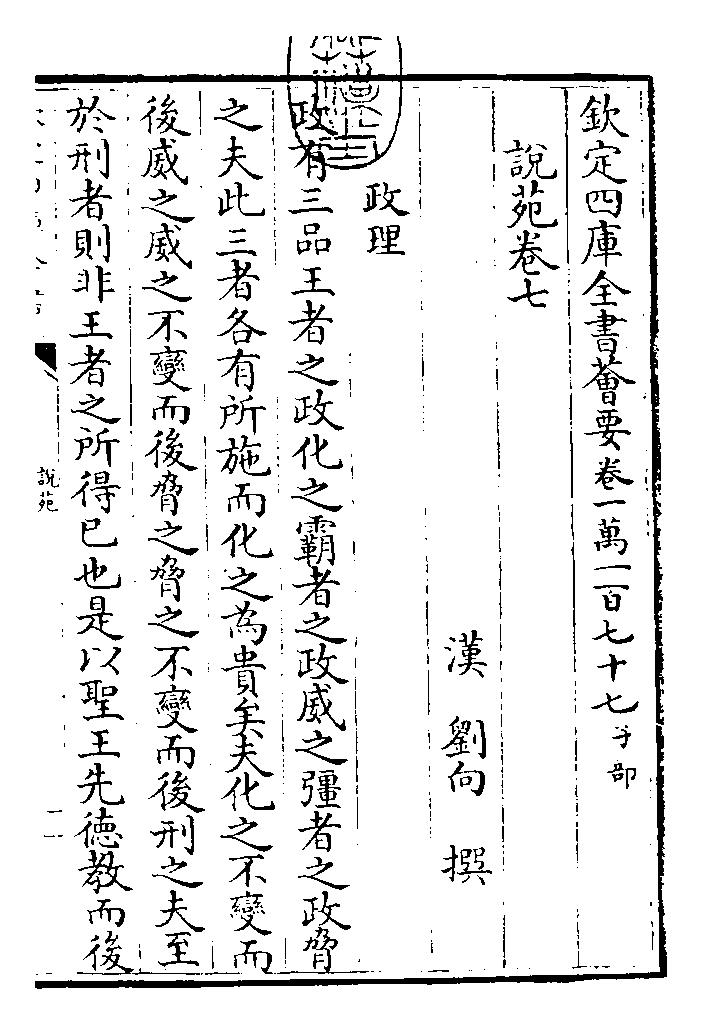 欽定四庫全書薈要卷一萬一百七十七子部
說苑卷七
漢 劉向 撰
政理
政有三品王者之政化之霸者之政威之彊者之政脅
之夫此三者各有所施而化之為貴矣夫化之不變而
後威之威之不變而後脅之脅之不變而後刑之夫至
於刑者則非王者之所得已也是以聖王先德教而後
說苑